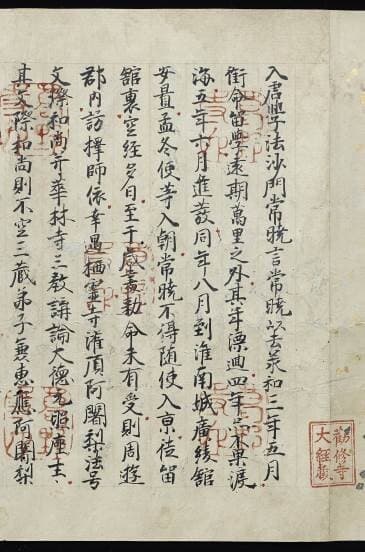 入唐學法沙門常曉言常曉以去承和三年五月
銜命留學遠期萬里之外其年漂廻四年亦不果渡
海五年六月進發同年八月到淮南城廣綾館
安置孟冬使等入朝常曉不得随使入京徒留
館裏空經多日至于歳盡勅命未有受則周遊
郡内訪擇師依幸遇栖靈寺灌頂阿闍梨法号
文𤩍和尚并華林寺三教講論大德元照座主
其文𤩍和尚則不空三蔵弟子無惠應阿闍梨
勸修寺
大経蔵